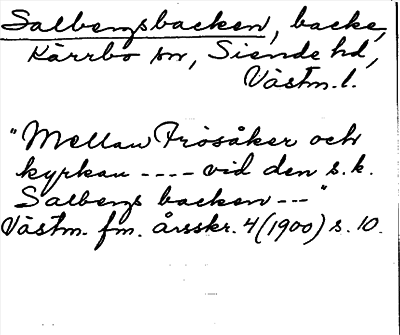 Salbergsbacken, backe,
Kärrbo sn, Siende hd,
Västm. l.
"Mellan Frösåker och
kyrkan ---- vid den s.k.
Salbergs backen ---"
Västm. fm. årsskr. 4 (1900) s. 10.